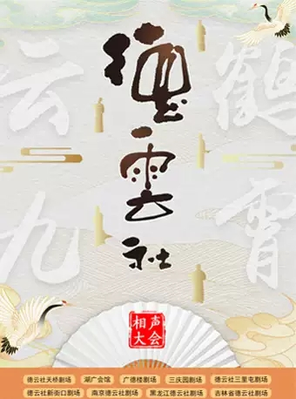 云 鶴
九 霄
德雲社
相声
大会
德云社天桥剧场 湖广会馆 广德楼剧场 三庆园剧场 德云社三里屯剧场
德云社新街口剧场 南京德云社剧场 黑龙江德云社剧场 吉林省德云社剧场